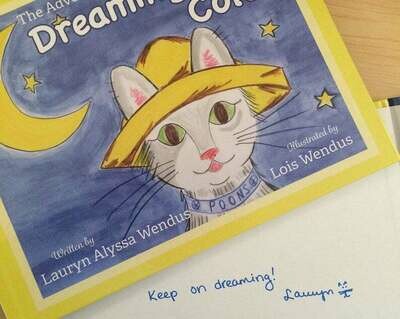 The Adve
Dreaming
Colo
POONS
Written by
Lauryn Alyssa Wendus
Illustrated by
Lois Wendus
Keep on dreaming!
Lauryn